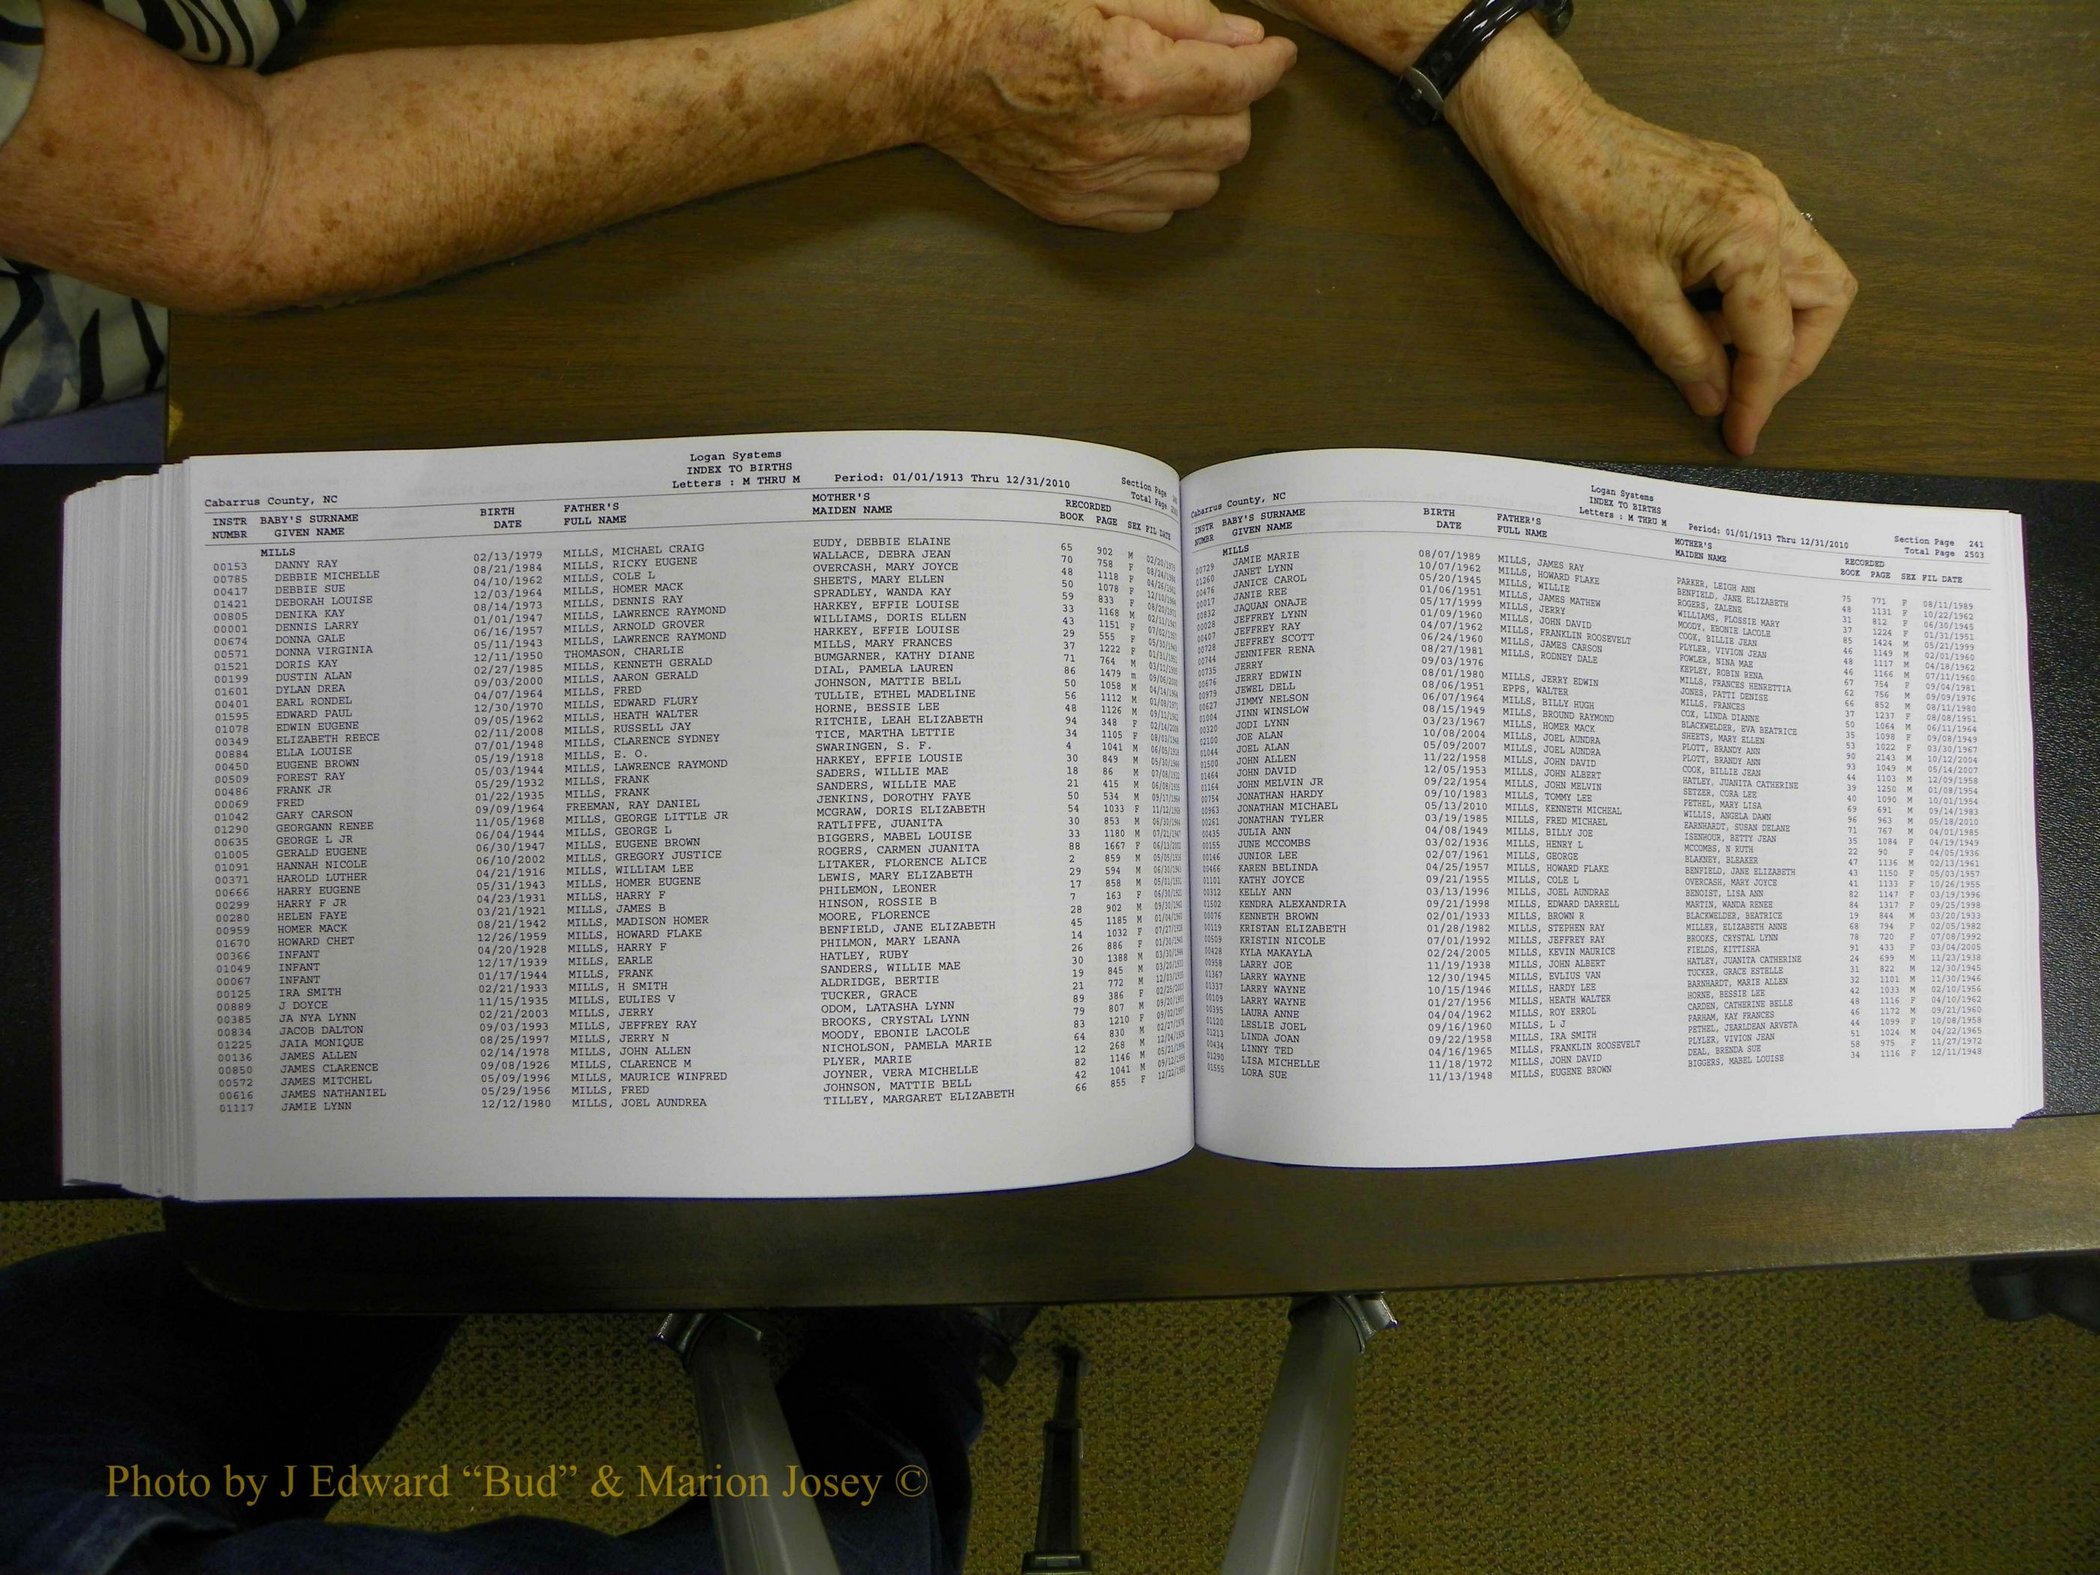 Logan Systems
INDEX TO BIRTHS
Letters : M THRU M Period: 01/01/1913 Thru 12/31/2010
Section Page
Total Page
Cabarrus County, NC
INSTR BABY'S SURNAME BIRTH FATHER'S MOTHER'S RECORDED
NUMBR GIVEN NAME DATE FULL NAME MAIDEN NAME BOOK PAGE SEX FIL DATE
MILLS
00153 DANNY RAY 02/13/1979 MILLS, MICHAEL CRAIG EUDY, DEBBIE ELAINE 65 902 M
00785 DEBBIE MICHELLE 08/21/1984 MILLS, RICKY EUGENE WALLACE, DEBRA JEAN 70 758 F
00417 DEBBIE SUE 04/10/1962 MILLS, COLE L OVERCASH, MARY JOYCE 48 1118 F
01421 DEBORAH LOUISE 12/03/1964 MILLS, HOMER MACK SHEETS, MARY ELLEN 50 1078 F
00805 DENIKA KAY 08/14/1973 MILLS, DENNIS RAY SPRADLEY, WANDA KAY 59 833 F
00001 DENNIS LARRY 01/01/1947 MILLS, LAWRENCE RAYMOND HARKEY, EFFIE LOUISE 33 1168 M
00674 DONNA GALE 06/16/1957 MILLS, ARNOLD GROVER WILLIAMS, DORIS ELLEN 43 1151 F
00571 DONNA VIRGINIA 05/11/1943 MILLS, LAWRENCE RAYMOND HARKEY, EFFIE LOUISE 29 555 F
01521 DORIS KAY 12/11/1950 THOMASON, CHARLIE MILLS, MARY FRANCES 37 1222 F
00199 DUSTIN ALAN 02/27/1985 MILLS, KENNETH GERALD BUMGARNER, KATHY DIANE 71 764 M
01601 DYLAN DREA 09/03/2000 MILLS, AARON GERALD DIAL, PAMELA LAUREN 86 1479 m
00401 EARL RONDEL 04/07/1964 MILLS, FRED JOHNSON, MATTIE BELL 50 1058 M
01595 EDWARD PAUL 12/30/1970 MILLS, EDWARD FLURY TULLIE, ETHEL MADELINE 56 1112 M
01078 EDWIN EUGENE 09/05/1962 MILLS, HEATH WALTER HORNE, BESSIE LEE 48 1126 M
00349 ELIZABETH REECE 02/11/2008 MILLS, RUSSELL JAY RITCHIE, LEAH ELIZABETH 94 348 F
00884 ELLA LOUISE 07/01/1948 MILLS, CLARENCE SYDNEY TICE, MARTHA LETTIE 34 1105 F
00450 EUGENE BROWN 05/19/1918 MILLS, E. O. SWARINGEN, S. F. 4 1041 M
00509 FOREST RAY 05/03/1944 MILLS, LAWRENCE RAYMOND HARKEY, EFFIE LOUSIE 30 849 M
00486 FRANK JR 05/29/1932 MILLS, FRANK SADERS, WILLIE MAE 18 86 M
00069 FRED 01/22/1935 MILLS, FRANK SANDERS, WILLIE MAE 21 415 M
01042 GARY CARSON 09/09/1964 FREEMAN, RAY DANIEL JENKINS, DOROTHY FAYE 50 534 M
01290 GEORGANN RENEE 11/05/1968 MILLS, GEORGE LITTLE JR MCGRAW, DORIS ELIZABETH 54 1033 F
00635 GEORGE L JR 06/04/1944 MILLS, GEORGE L RATLIFFE, JUANITA 30 853 M
01005 GERALD EUGENE 06/30/1947 MILLS, EUGENE BROWN BIGGERS, MABEL LOUISE 33 1180 M
01091 HANNAH NICOLE 06/10/2002 MILLS, GREGORY JUSTICE ROGERS, CARMEN JUANITA 88 1667 F
00371 HAROLD LUTHER 04/21/1916 MILLS, WILLIAM LEE LITAKER, FLORENCE ALICE 2 859 M
00666 HARRY EUGENE 05/31/1943 MILLS, HOMER EUGENE LEWIS, MARY ELIZABETH 29 594 M
00299 HARRY F JR 04/23/1931 MILLS, HARRY F PHILEMON, LEONER 17 858 M
00280 HELEN FAYE 03/21/1921 MILLS, JAMES B HINSON, ROSSIE B 7 163 F
00959 HOMER MACK 08/21/1942 MILLS, MADISON HOMER MOORE, FLORENCE 28 902 M
01670 HOWARD CHET 12/26/1959 MILLS, HOWARD FLAKE BENFIELD, JANE ELIZABETH 45 1185 M
00366 INFANT 04/20/1928 MILLS, HARRY F PHILMON, MARY LEANA 14 1032 F
01049 INFANT 12/17/1939 MILLS, EARLE HATLEY, RUBY 26 886 F
00067 INFANT 01/17/1944 MILLS, FRANK SANDERS, WILLIE MAE 30 1388 M
00125 IRA SMITH 02/21/1933 MILLS, H SMITH ALDRIDGE, BERTIE 19 845 M
00889 J DOYCE 11/15/1935 MILLS, EULIES V TUCKER, GRACE 21 772 M
00385 JA NYA LYNN 02/21/2003 MILLS, JERRY ODOM, LATASHA LYNN 89 386 F
00834 JACOB DALTON 09/03/1993 MILLS, JEFFREY RAY BROOKS, CRYSTAL LYNN 79 807 M
01225 JAIA MONIQUE 08/25/1997 MILLS, JERRY N MOODY, EBONIE LACOLE 83 1210 F
00136 JAMES ALLEN 02/14/1978 MILLS, JOHN ALLEN NICHOLSON, PAMELA MARIE 64 830 M
00850 JAMES CLARENCE 09/08/1926 MILLS, CLARENCE M PLYER, MARIE 12 268 M
00572 JAMES MITCHEL 05/09/1996 MILLS, MAURICE WINFRED JOYNER, VERA MICHELLE 82 1146 M
00616 JAMES NATHANIEL 05/29/1956 MILLS, FRED JOHNSON, MATTIE BELL 42 1041 M
01117 JAMIE LYNN 12/12/1980 MILLS, JOEL AUNDREA TILLEY, MARGARET ELIZABETH 66 855 F
Logan Systems
INDEX TO BIRTHS
Letters : M THRU M Period: 01/01/1913 Thru 12/31/2010
Section Page 241
Total Page 2503
Cabarrus County, NC
INSTR BABY'S SURNAME BIRTH FATHER'S MOTHER'S RECORDED
NUMBR GIVEN NAME DATE FULL NAME MAIDEN NAME BOOK PAGE SEX FIL DATE
MILLS
00729 JAMIE MARIE 08/07/1989 MILLS, JAMES RAY PARKER, LEIGH ANN 75 771 F 08/11/1989
01260 JANET LYNN 10/07/1962 MILLS, HOWARD FLAKE BENFIELD, JANE ELIZABETH 48 1131 F 10/22/1962
00476 JANICE CAROL 05/20/1945 MILLS, WILLIE ROGERS, ZALENE 31 812 F 06/30/1945
00017 JANIE REE 01/06/1951 MILLS, JAMES MATHEW WILLIAMS, FLOSSIE MARY 37 1224 F 01/31/1951
00832 JAQUAN ONAJE 05/17/1999 MILLS, JERRY MOODY, EBONIE LACOLE 85 1424 M 05/21/1999
00028 JEFFREY LYNN 01/09/1960 MILLS, JOHN DAVID COOK, BILLIE JEAN 46 1149 M 02/01/1960
00407 JEFFREY RAY 04/07/1962 MILLS, FRANKLIN ROOSEVELT PLYLER, VIVION JEAN 48 1117 M 04/18/1962
00728 JEFFREY SCOTT 06/24/1960 MILLS, JAMES CARSON FOWLER, NINA MAE 46 1166 M 07/11/1960
00744 JENNIFER RENA 08/27/1981 MILLS, RODNEY DALE KEPLEY, ROBIN RENA 67 754 F 09/04/1981
00735 JERRY 09/03/1976 MILLS, FRANCES HENRETTIA 62 756 M 09/09/1976
00676 JERRY EDWIN 08/01/1980 MILLS, JERRY EDWIN JONES, PATTI DENISE 66 852 M 08/11/1980
00979 JEWEL DELL 08/06/1951 EPPS, WALTER MILLS, FRANCES 37 1237 F 08/08/1951
00627 JIMMY NELSON 06/07/1964 MILLS, BILLY HUGH COX, LINDA DIANNE 50 1064 M 06/11/1964
01004 JINN WINSLOW 08/15/1949 MILLS, BROUND RAYMOND BLACKWELDER, EVA BEATRICE 35 1098 F 09/08/1949
00320 JODI LYNN 03/23/1967 MILLS, HOMER MACK SHEETS, MARY ELLEN 53 1022 F 03/30/1967
02100 JOE ALAN 10/08/2004 MILLS, JOEL AUNDRA PLOTT, BRANDY ANN 90 2143 M 10/12/2004
01044 JOEL ALAN 05/09/2007 MILLS, JOEL AUNDRA PLOTT, BRANDY ANN 93 1049 M 05/14/2007
01500 JOHN ALLEN 11/22/1958 MILLS, JOHN DAVID COOK, BILLIE JEAN 44 1103 M 12/09/1958
01464 JOHN DAVID 12/05/1953 MILLS, JOHN ALBERT HATLEY, JUANITA CATHERINE 39 1250 M 01/08/1954
01164 JOHN MELVIN JR 09/22/1954 MILLS, JOHN MELVIN SETZER, CORA LEE 40 1090 M 10/01/1954
00754 JONATHAN HARDY 09/10/1983 MILLS, TOMMY LEE PETHEL, MARY LISA 69 691 M 09/14/1983
00963 JONATHAN MICHAEL 05/13/2010 MILLS, KENNETH MICHEAL WILLIS, ANGELA DAWN 96 963 M 05/18/2010
00261 JONATHAN TYLER 03/19/1985 MILLS, FRED MICHAEL EARNHARDT, SUSAN DELANE 71 767 M 04/01/1985
00435 JULIA ANN 04/08/1949 MILLS, BILLY JOE ISENHOUR, BETTY JEAN 35 1084 F 04/19/1949
00155 JUNE MCCOMBS 03/02/1936 MILLS, HENRY L MCCOMBS, N RUTH 22 90 F 04/05/1936
00146 JUNIOR LEE 02/07/1961 MILLS, GEORGE BLAKNEY, BLEAKER 47 1136 M 02/13/1961
00466 KAREN BELINDA 04/25/1957 MILLS, HOWARD FLAKE BENFIELD, JANE ELIZABETH 43 1150 F 05/03/1957
01101 KATHY JOYCE 09/21/1955 MILLS, COLE L OVERCASH, MARY JOYCE 41 1133 F 10/26/1955
00312 KELLY ANN 03/13/1996 MILLS, JOEL AUNDRAE BENOIST, LISA ANN 82 1147 F 03/19/1996
01502 KENDRA ALEXANDRIA 09/21/1998 MILLS, EDWARD DARRELL MARTIN, WANDA RENEE 84 1317 F 09/25/1998
00076 KENNETH BROWN 02/01/1933 MILLS, BROWN R BLACKWELDER, BEATRICE 19 844 M 03/20/1933
00119 KRISTAN ELIZABETH 01/28/1982 MILLS, STEPHEN RAY MILLER, ELIZABETH ANNE 68 794 F 02/05/1982
00509 KRISTIN NICOLE 07/01/1992 MILLS, JEFFREY RAY BROOKS, CRYSTAL LYNN 78 720 F 07/08/1992
00428 KYLA MAKAYLA 02/24/2005 MILLS, KEVIN MAURICE FIELDS, KITTISHA 91 433 F 03/04/2005
00958 LARRY JOE 11/19/1938 MILLS, JOHN ALBERT HATLEY, JUANITA CATHERINE 24 699 M 11/23/1938
01367 LARRY WAYNE 12/30/1945 MILLS, EVLIUS VAN TUCKER, GRACE ESTELLE 31 822 M 12/30/1945
01337 LARRY WAYNE 10/15/1946 MILLS, HARDY LEE BARNHARDT, MARIE ALLEN 32 1101 M 11/30/1946
00109 LARRY WAYNE 01/27/1956 MILLS, HEATH WALTER HORNE, BESSIE LEE 42 1033 M 02/10/1956
00395 LAURA ANNE 04/04/1962 MILLS, ROY ERROL CARDEN, CATHERINE BELLE 48 1116 F 04/10/1962
01120 LESLIE JOEL 09/16/1960 MILLS, L J PARHAM, KAY FRANCES 46 1172 M 09/21/1960
01213 LINDA JOAN 09/22/1958 MILLS, IRA SMITH PETHEL, JEARLDEAN ARVETA 44 1099 F 10/08/1958
00434 LINNY TED 04/16/1965 MILLS, FRANKLIN ROOSEVELT PLYLER, VIVION JEAN 51 1024 M 04/22/1965
01290 LISA MICHELLE 11/18/1972 MILLS, JOHN DAVID DEAL, BRENDA SUE 58 975 F 11/27/1972
01555 LORA SUE 11/13/1948 MILLS, EUGENE BROWN BIGGERS, MABEL LOUISE 34 1116 F 12/11/1948
Photo by J Edward “Bud” & Marion Josey ©